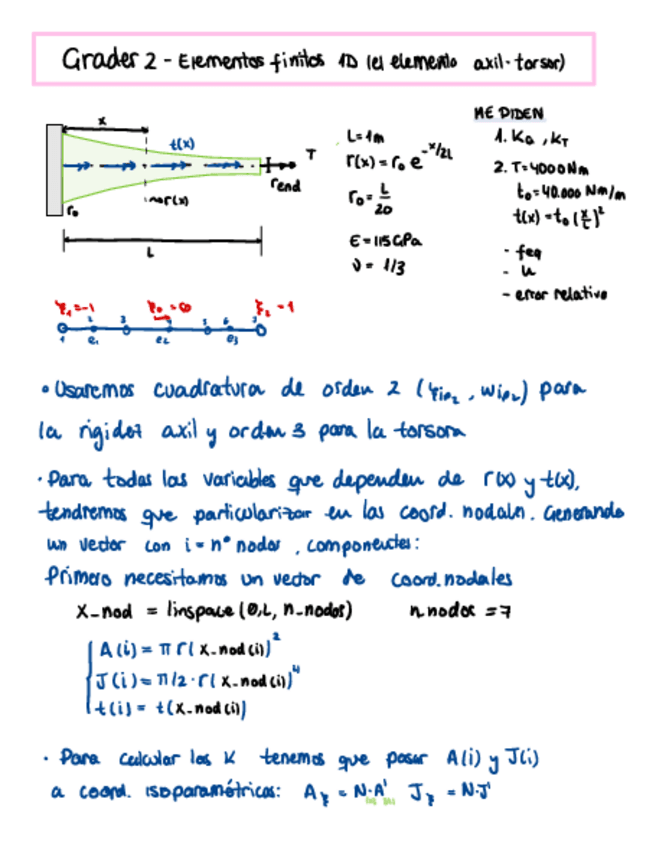 Grader 2 - Elementos finitos 1D (el elemento axil-torsor)
x
t(x)
T
rend
r(x)
r₀
L
L = 1m
r(x) = r₀ e^(-x/2L)
r₀ = L/20
E = 115 GPa
ν = 1/3
ME PIDEN
1. Ka, KT
2. T = 4000 Nm
t₀ = 40.000 Nm/m
t(x) = t₀ (x/L)²
- feq
- u
- error relativo
ξ₁ = -1
ξ₂ = 1
1 2 3 4 5 6 7
e₁ e₂ e₃
• Usaremos cuadratura de orden 2 (ξip₂, wip₂) para
la rigidez axil y orden 3 para la torsora
· Para todas las variables que dependen de r(x) y t(x),
tendremos que particularizar en las coord. nodales. Generando
un vector con i = nº nodos, componentes:
Primero necesitamos un vector de coord. nodales
x_nod = linspace (0, L, n_nodos) n_nodos = 7
A(i) = π r(x_nod(i))²
J(i) = π/2 · r(x_nod(i))⁴
t(i) = t(x_nod(i))
· Para calcular las K tenemos que pasar A(i) y J(i)
a coord. isoparamétricas: Aξ = N·A' Jξ = N·J'